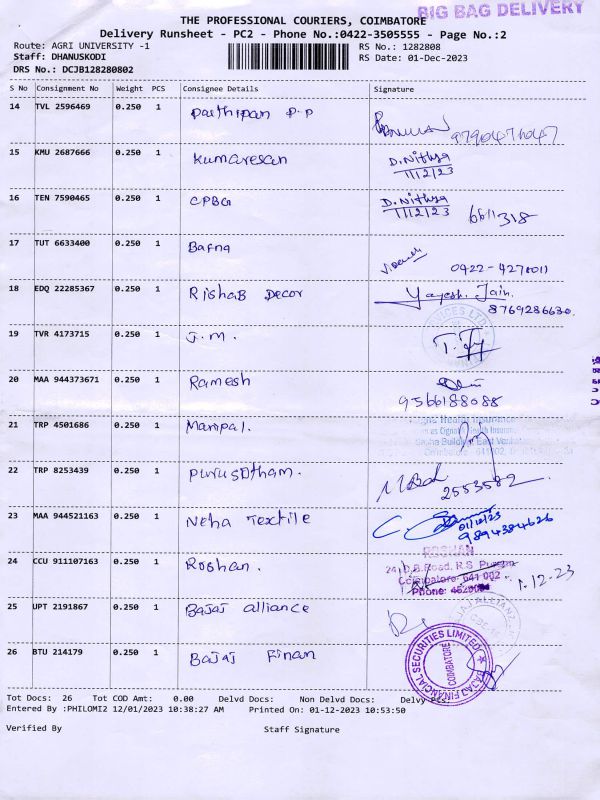 BIG BAG DELIVERY
THE PROFESSIONAL COURIERS, COIMBATORE
Delivery Runsheet - PC2 - Phone No.:0422-3505555 - Page No.:2
Route: AGRI UNIVERSITY -1 RS No.: 1282808
Staff: DHANUSKODI RS Date: 01-Dec-2023
DRS No.: DCJB128280802
S No Consignment No Weight PCS Consignee Details Signature
14 TVL 2596469 0.250 1 Parthipan P.P 9790471047
15 KMU 2687666 0.250 1 Kumaresan D.Nithya
1/12/23
16 TEN 7590465 0.250 1 CPBG D.Nithya 6611318
1/12/23
17 TUT 6633400 0.250 1 Bafna
0422-4271011
18 EDQ 22285367 0.250 1 Rishab Decor Yayesh. Jain.
8769286630.
19 TVR 4173715 0.250 1 J.M.
20 MAA 944373671 0.250 1 Ramesh
9566188088
21 TRP 4501686 0.250 1 Manipal. Health Insurance
22 TRP 8253439 0.250 1 Purusotham.
2553582
23 MAA 944521163 0.250 1 Neha Textile 01/12/23
9894384626
24 CCU 911107163 0.250 1 Roshan. ROSHAN
24, D.B.Road, R.S
Coimbatore-641 002. 1.12.23
Phone:
25 UPT 2191867 0.250 1 Bajaj alliance BAJAJ ALLIANZ
26 BTU 214179 0.250 1 Bajaj Finan BAJAJ FINANCIAL SECURITIES LIMITED
COIMBATORE
Tot Docs: 26 Tot COD Amt: 0.00 Delvd Docs: Non Delvd Docs:
Entered By :PHILOMI2 12/01/2023 10:38:27 AM Printed On: 01-12-2023 10:53:50
Verified By Staff Signature